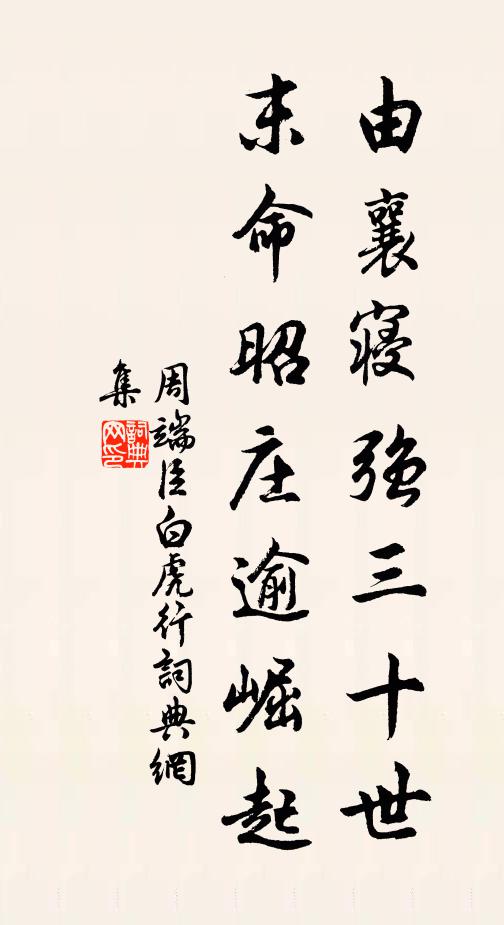 由襄寝强三十世
末命昭庄逾崛起
周端臣白虎行詞典網
集
詞典
网印